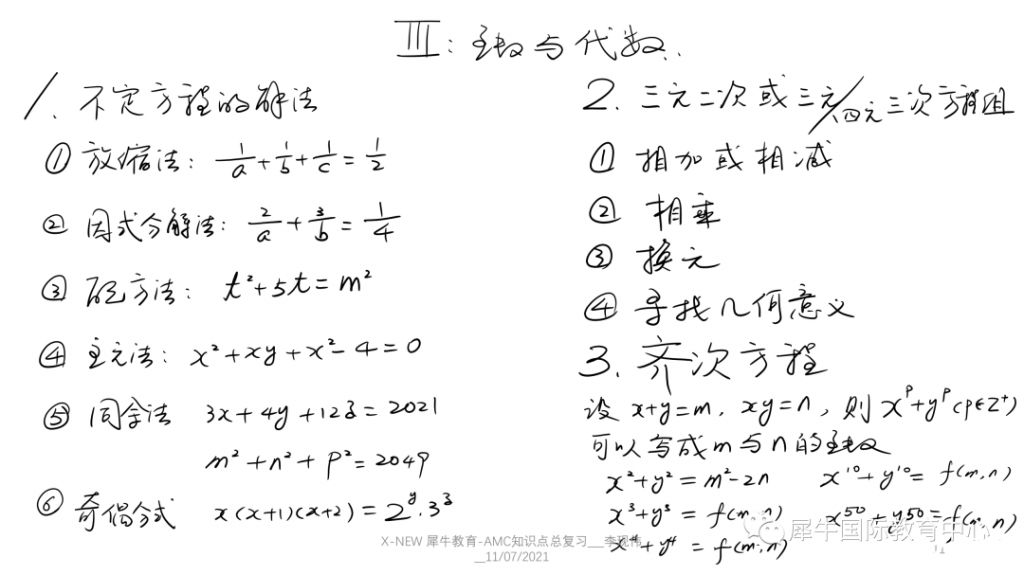 III: 函数与代数.
1. 不定方程的解法
① 放缩法: 1/a + 1/b + 1/c = 1/2
② 因式分解法: 2/a + 3/b = 1/4
③ 配方法: t²+5t=m²
④ 主元法: x²+xy+x²-4=0
⑤ 同余法 3x+4y+12z=2021
m²+n²+p²=2049
⑥ 奇偶分式 x(x+1)(x+2)=2^y·3^z
2. 三元二次或三元/四元三次方程组
① 相加或相减
② 相乘
③ 换元
④ 寻找几何意义
3. 齐次方程
设 x+y=m, xy=n, 则 x^p+y^p(p∈Z⁺)
可以写成m与n的函数
x²+y²=m²-2n x¹⁰+y¹⁰=f(m,n)
x³+y³=f(m,n) x⁵⁰+y⁵⁰=f(m,n)
x⁴+y⁴=f(m,n)
犀牛国际教育中心
X-NEW 犀牛教育-AMC知识点总复习__李现伟
__11/07/2021